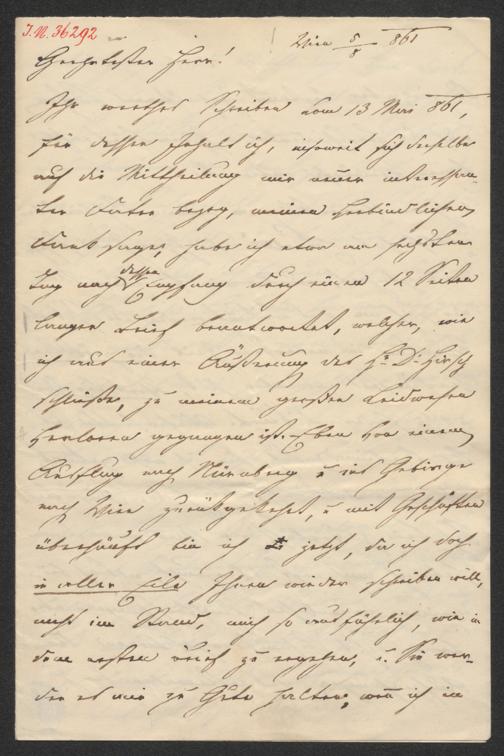 I.N. 36292
Wien 5/8 861
Geehrtester Herr!
Ihr werthes Schreiben vom 13 Mai 861,
für dessen Inhalt ich, insoweit sich derselbe
auf die Mittheilung mir neuer interessan-
ter Daten bezog, meinen verbindlichsten
Dank sage, habe ich etwa am sechsten
Tag nach dessen Empfang durch einen 12 Seiten
langen Brief beantwortet, welcher, wie
ich aus einer Äußerung des H. Dr. Hirsch
schließe, zu meinem großen Leidwesen
verloren gegangen ist. Eben von einem
Ausflug nach Nürnberg u ins Gebirge
nach Wien zurückgekehrt, u mit Geschäften
überhäuft bin ich jetzt, da ich doch
in aller Eile Ihnen wieder schreiben will,
nicht im Stand, mich so ausführlich, wie in
dem ersten Brief zu ergehen, u. Sie wer-
den es mir zu Gute halten, wenn ich im